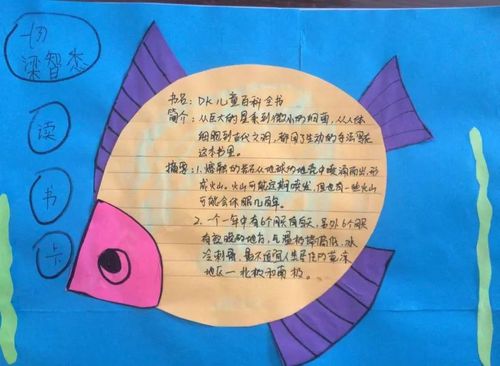 一(7)
梁智杰
读
书
卡
书名：DK儿童百科全书
简介：从巨大的星系到微小的细菌，从人体
细胞到古代文明，都用了生动的手法写在
这本书里。
摘要：1.熔融的岩石从地球的地壳中喷涌而出，形
成火山。火山可能定期喷发，但也有一些火山
可能会休眠几百年。
2.一个一年中有6个月白天，另外6个月
有夜晚的地方，气温极其偏低，冰
冷刺骨，最不适宜人类居住的
地区一北极和南极。